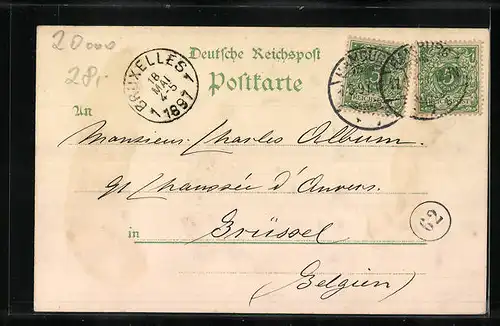 20000
28,-
BRUXELLES 1
18
MAI
4-5
1897
Deutsche Reichspost
Postkarte
HAMBURG
5
5
An
Monsieur Charles Album.
91 Chaussée d'Anvers.
in Brüssel
62
(Belgien)